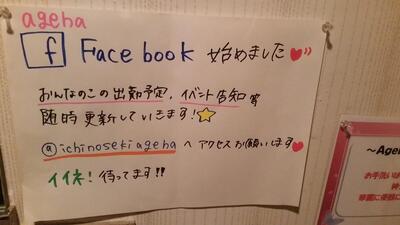 ageha
f Facebook 始めました♥
おんなのこの出勤予定、イベント告知等
随時更新していきます!☆
@ichinosekiageha へアクセスお願いします♥
イイネ!待ってます!!
〜Age
お手洗いは